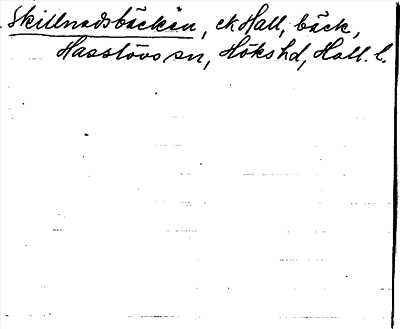 Skillnadsbäcken, ek Hall, bäck,
Hasslövs sn, Höks hd, Hall. l.